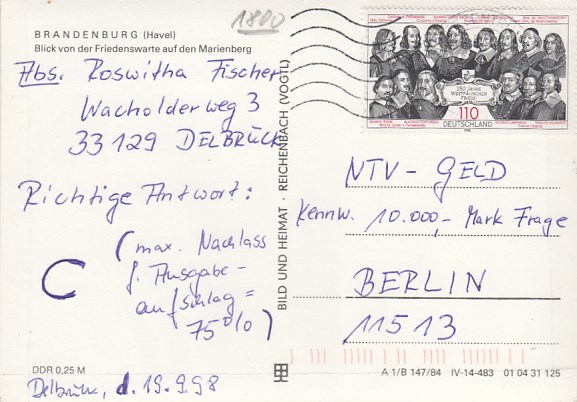 1800
BRANDENBURG (Havel)
Blick von der Friedenswarte auf den Marienberg
Abs. Roswitha Fischer
Wacholderweg 3
33129 DELBRÜCK
Richtige Antwort:
C
(max. Nachlass
f. Ausgabe-
aufschlag =
75%)
DDR 0,25 M
Delbrück, d. 19.9.98
BILD UND HEIMAT · REICHENBACH (VOGTL)
350 JAHRE
WESTFÄLISCHER
FRIEDE
110
DEUTSCHLAND
NTV - GELD
Kennw. 10.000,- Mark Frage
BERLIN
11513
A 1/B 147/84 IV-14-483 01 04 31 125